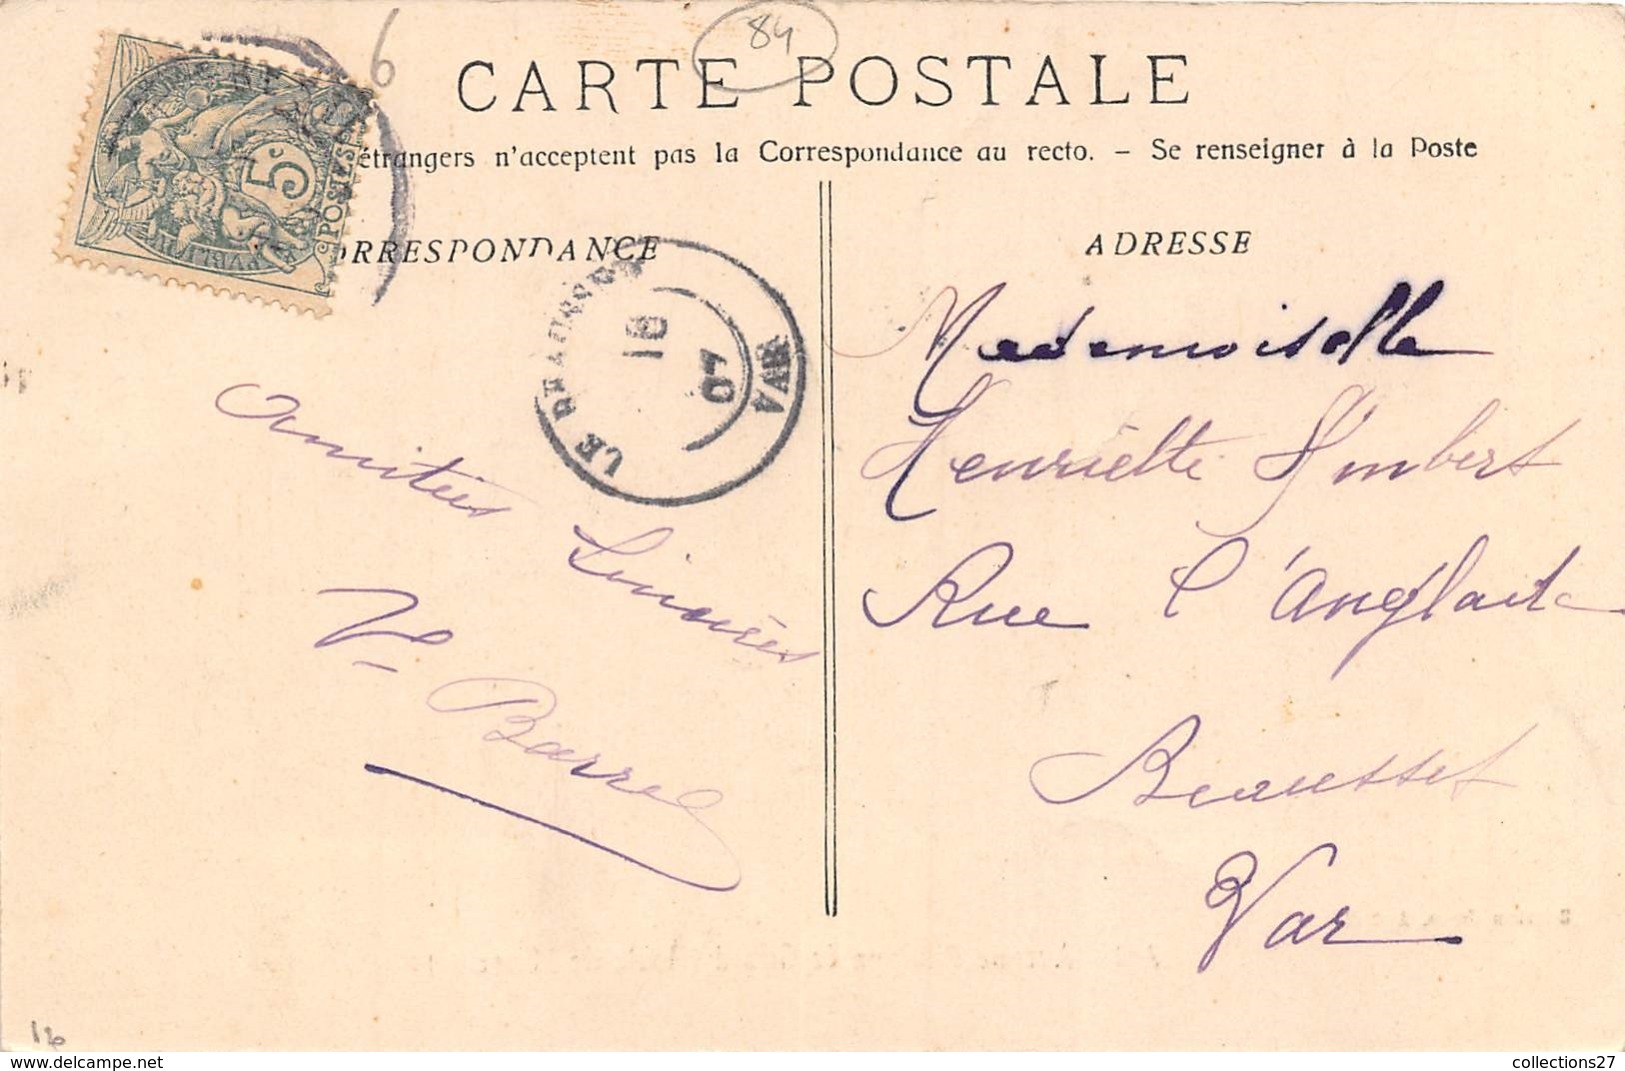 84
6
CARTE POSTALE
étrangers n'acceptent pas la Correspondance au recto. - Se renseigner à la Poste
5c
POSTES
ORRESPONDANCE
ADRESSE
LE BEAUSSET
VAR
07
Amitiés
Sincères
Barrel
Mademoiselle
Henriette Imbert
Rue
Beausset
Var
16
collections27